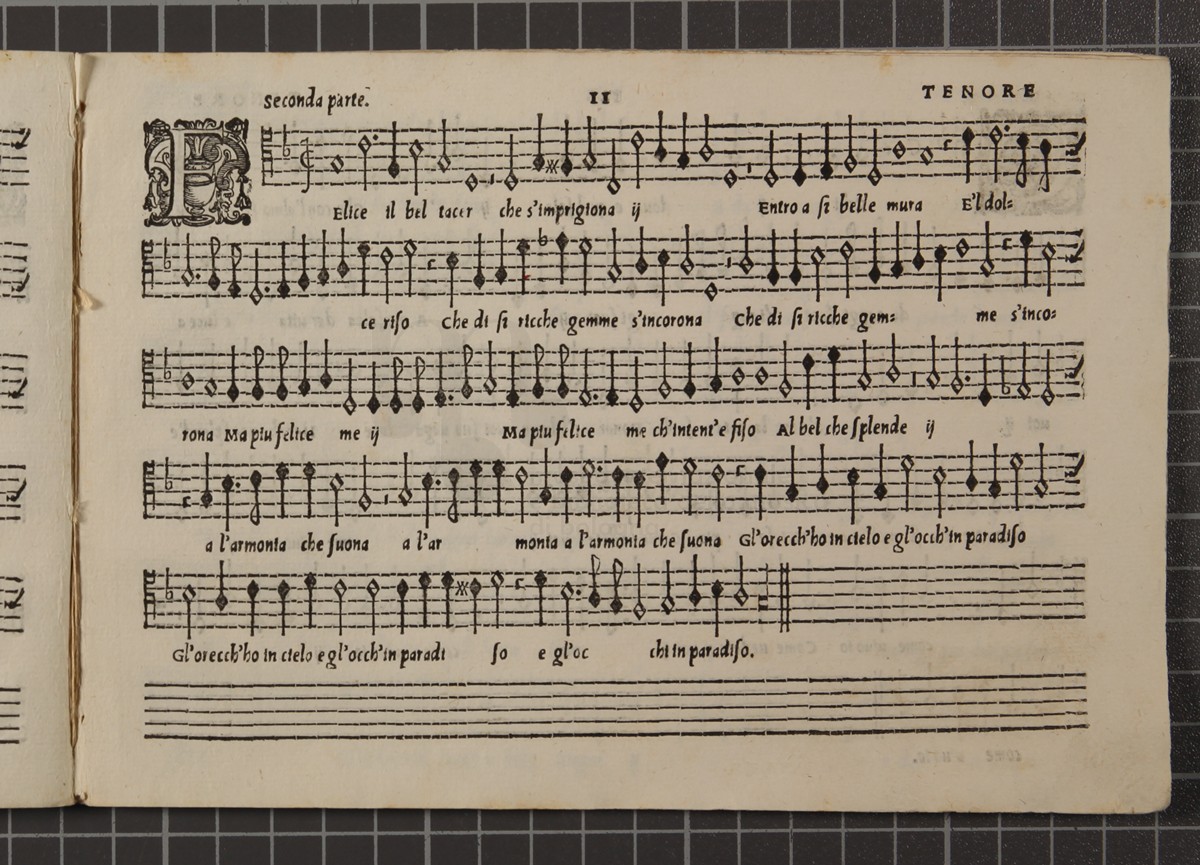 Seconda parte. 11 TENORE
FElice il bel tacer che s'imprigiona ij Entro a si belle mura E'l dol=
ce riso Che di si ricche gemme s'incorona Che di si ricche gem= me s'inco=
rona Ma piu felice me ij Ma piu felice me ch'intent'e fiso Al bel che splende ij
a l'armonia che suona a l'ar monia a l'armonia che suona Gl'orecch'ho in cielo e gl'occh'in paradiso
Gl'orecch'ho in cielo e gl'occh'in paradi so e gl'oc chi in paradiso.